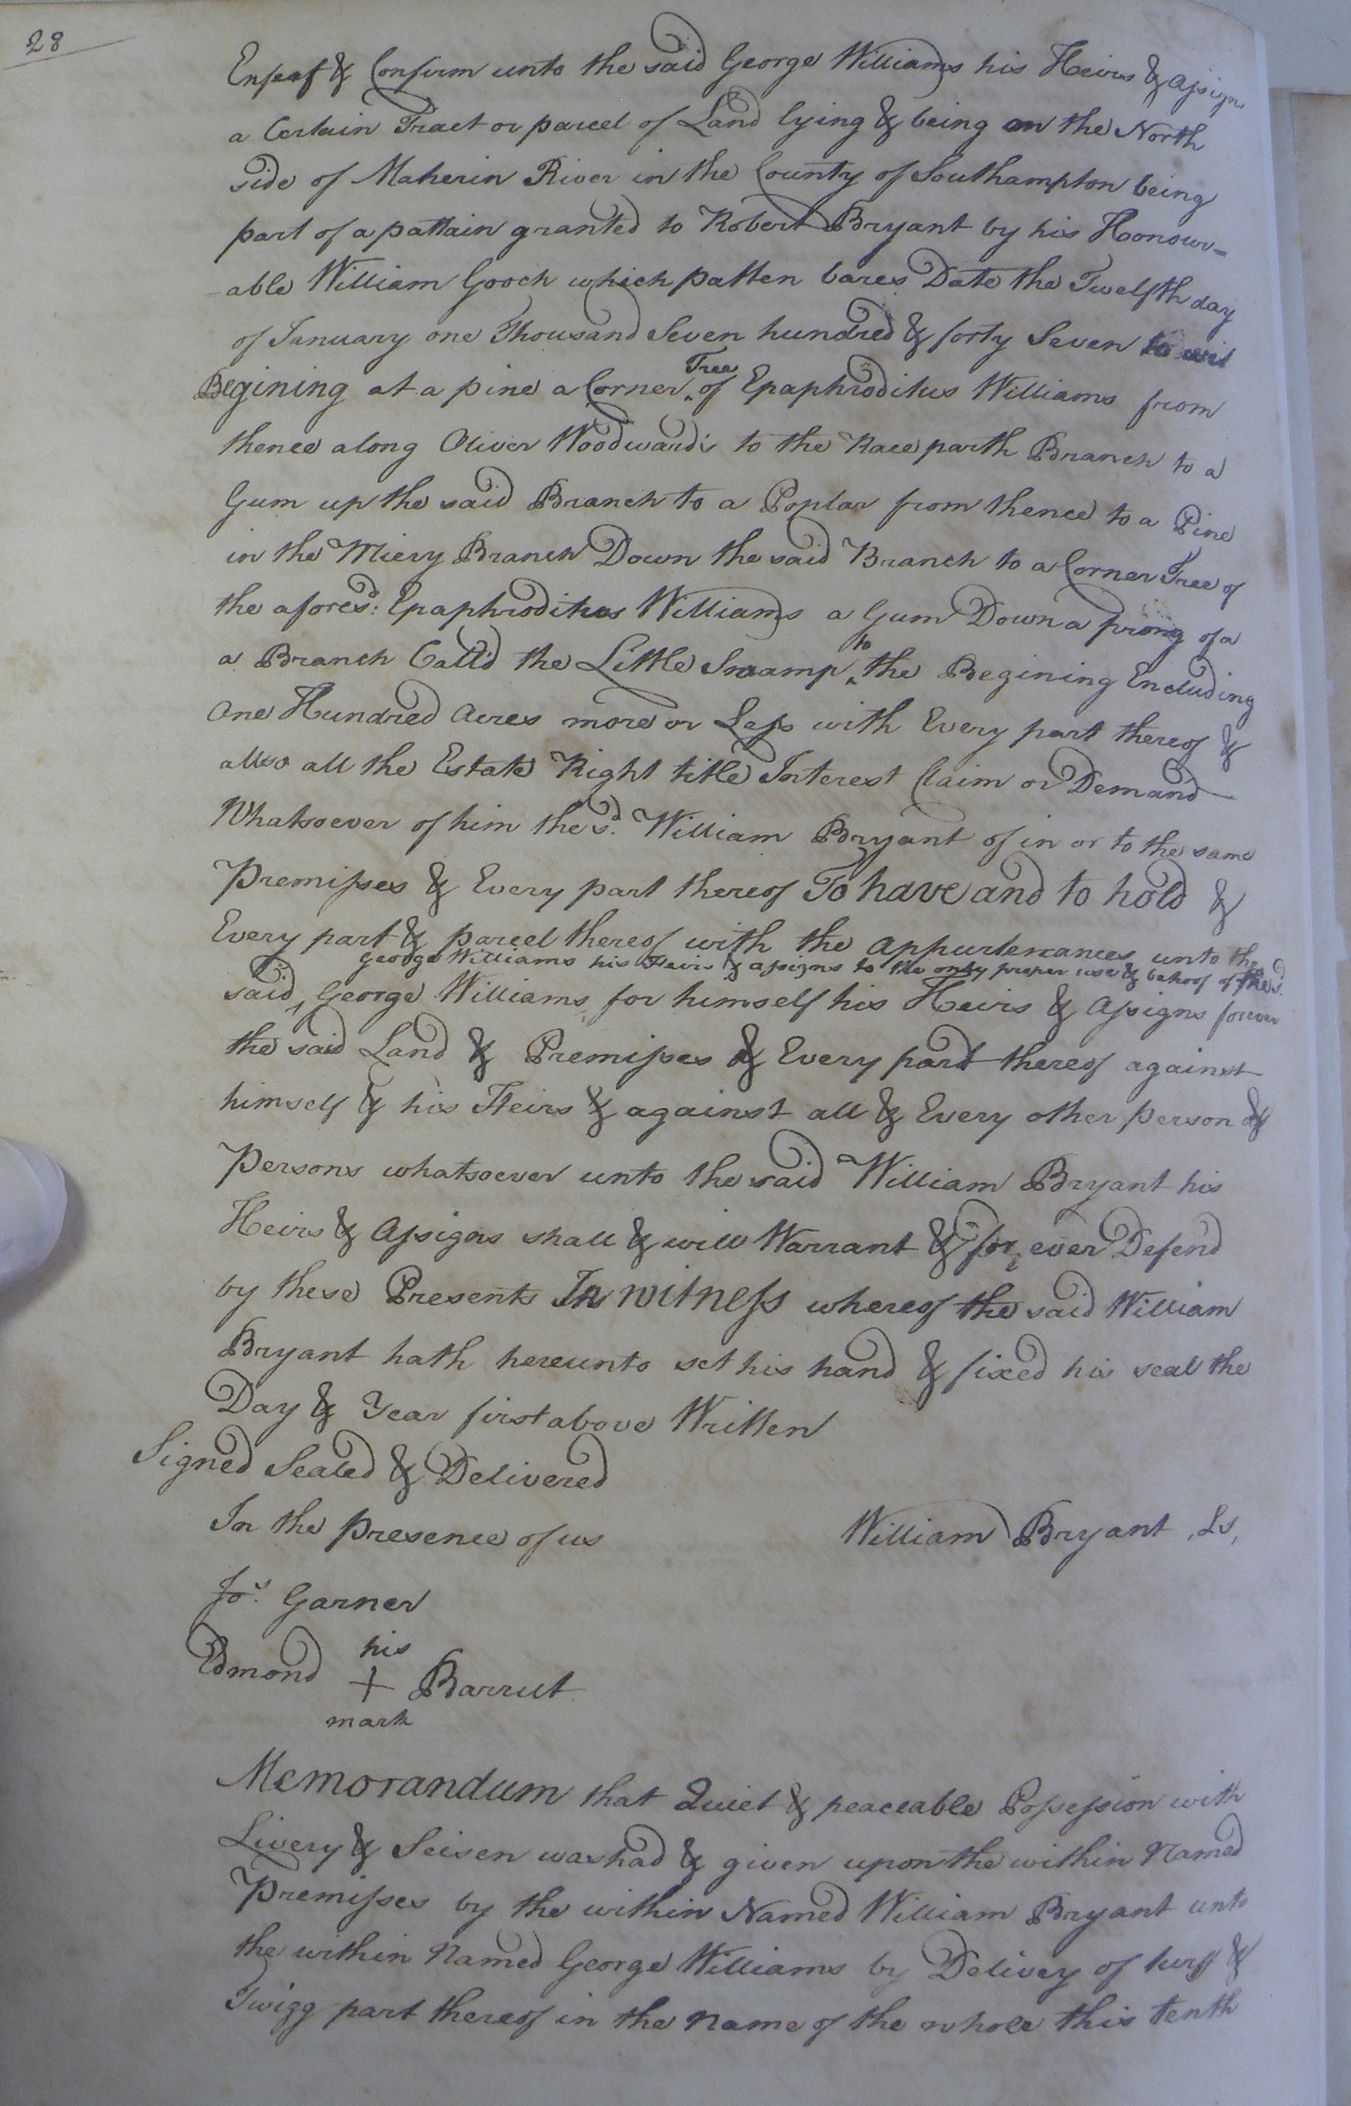 28
Enfeof & Confirm unto the said George Williams his Heirs & Assigns
a Certain Tract or parcel of Land lying & being on the North
side of Maherin River in the County of Southampton being
part of a pattain granted to Robert Bryant by his Honour-
-able William Gooch which patten bares Date the Twelfth day
of January one Thousand Seven hundred & forty Seven to wit
Begining at a pine a Corner Tree of Epaphroditus Williams from
thence along Oliver Woodward's to the Race parth Branch to a
Gum up the said Branch to a Poplar from thence to a Pine
in the Miery Branch Down the said Branch to a Corner Tree of
the aforesd: Epaphroditus Williams a Gum Down a prong of a
a Branch Call'd the Little Swamp to the Begining Encluding
One Hundred Acres more or Less with Every part thereof &
allso all the Estate Right title Interest Claim or Demand
Whatsoever of him the sd. William Bryant of in or to the same
Premisses & Every part thereof To have and to hold &
Every part & parcel thereof with the appurtenances unto the
George Williams his Heirs & assigns to the only proper use & behoof of the sd.
said George Williams for himself his Heirs & Assigns forever
the said Land & Premisses & Every part thereof against
himself & his Heirs & against all & Every other person &
Persons whatsoever unto the said William Bryant his
Heirs & Assigns shall & will Warrant & for ever Defend
by these Presents In witness whereof the said William
Bryant hath hereunto set his hand & fixed his seal the
Day & Year first above Written
Signed Sealed & Delivered
In the Presence of us William Bryant Ls,
Jos. Garner
his
Edmond + Barrut
mark
Memorandum that Quiet & peaceable Possession with
Livery & Seisen was had & given upon the within Named
Premisses by the within Named William Bryant unto
the within Named George Williams by Delivey of turff &
Twigg part thereof in the Name of the whole this tenth